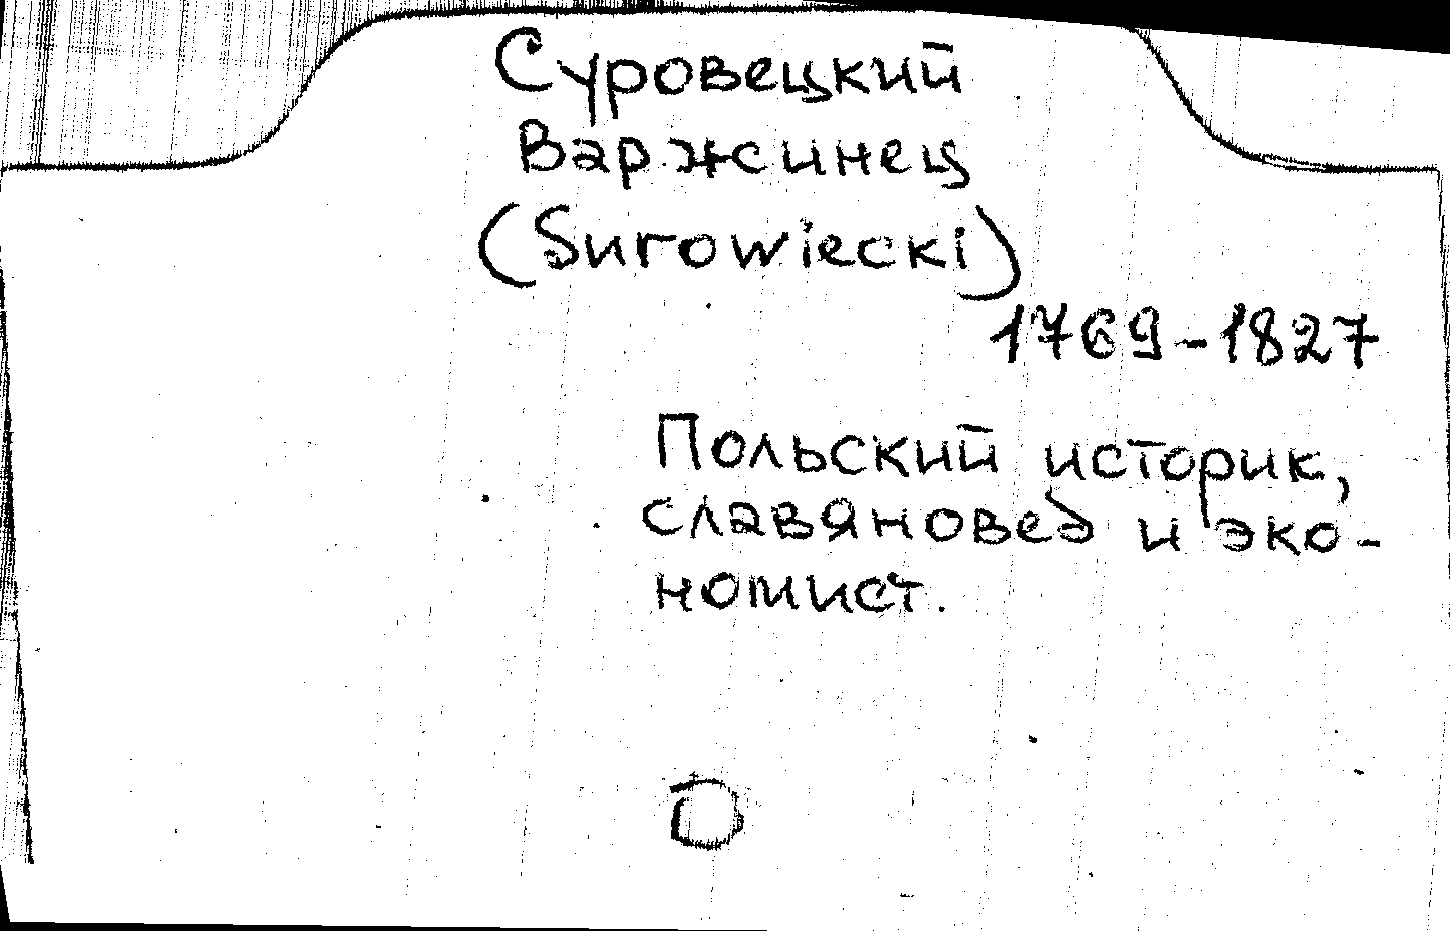 Суровецкий
Варжинец
(Surowiecki)
1769-1827
Польский историк,
славяновед и эко-
номист.